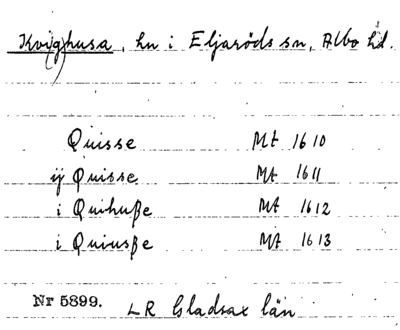 Kvighusa, hn i Eljaröds sn, Albo hd.
Quisse Mt 1610
ij Quisse Mt 1611
i Quihuße Mt 1612
i Quiusße Mt 1613
Nr 5899. LR Gladsax län